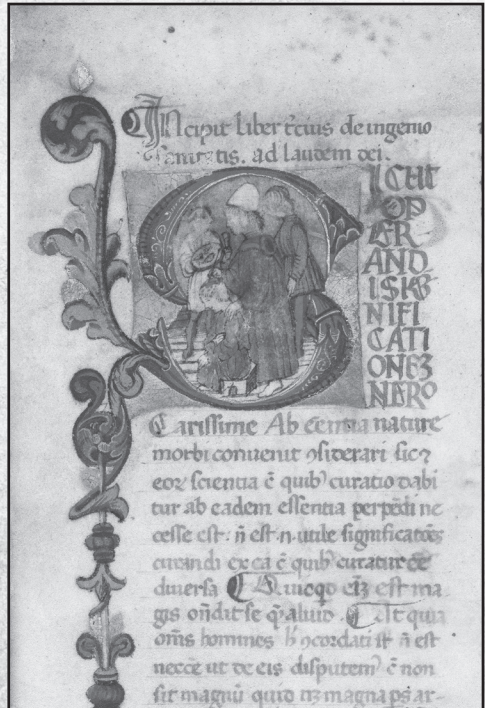 Incipit liber t̄cius de ingenio
sanitatis. ad laudem dei.
S
ICUT
OP
ER
AND
I SIG
NIFI
CATI
ONEȝ
NERO
Carissime Ab eēntia nature
morbi conuenit ꝯsiderari sicꝫ
eoꝝ scientia ē quibꝰ curatio dabi
tur ab eadem essentia perpēdi ne
cesse est. n̄ est .n. utile
curandi ex ea ē quibꝰ curatur
diuersa Quicqͥd eiꝫ est ma
gis on̄dit se qͣ aliud. Et quia
om̄s homines h̓ ꝯcordati st̄ n̄ est
necc̄e ut de eis disputem̓ c̄ non
sit magnū quid magna ar-